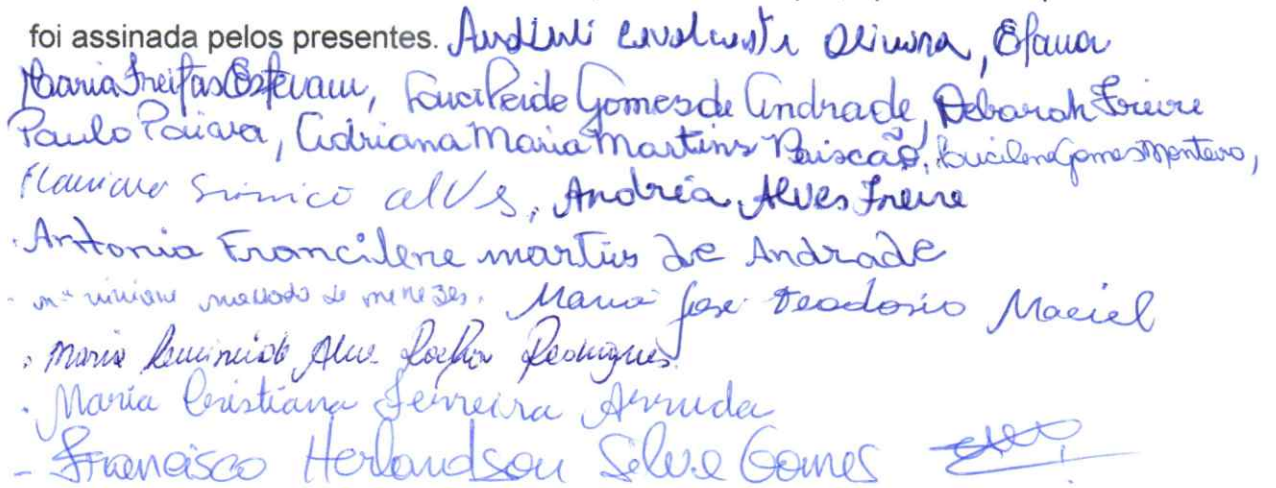 foi assinada pelos presentes. Cavalcante Oliveira, Efania
Maria Freitas Estevam, Gomes de Andrade, Deborah Freire
Paulo Paiva, Adriana Maria Martins Paixão, Lucilene Gomes Monteiro,
Alves, Andréa Alves Freire
. Antonia Francilene martins de Andrade
mª viviane de menezes. Maria José Teodosio Maciel
. Maria Alves Rocha Rodrigues
. Maria Cristiana Ferreira Arruda
- Francisco Herlandson Silva Gomes